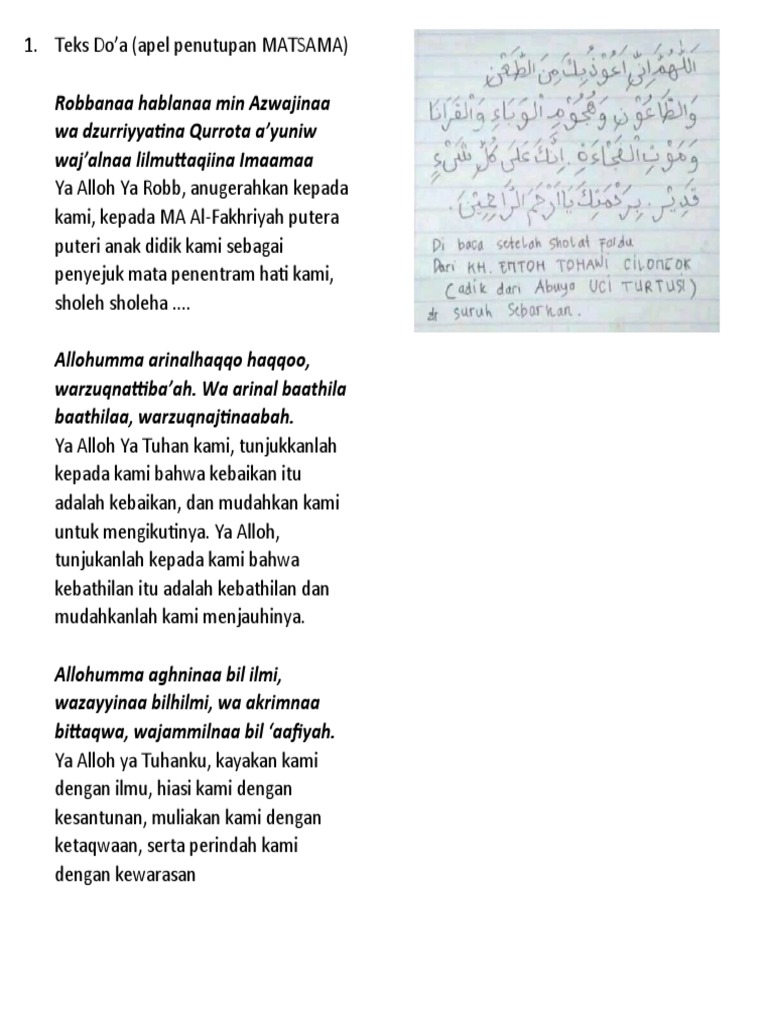 1. Teks Do’a (apel penutupan MATSAMA)
Robbanaa hablanaa min Azwajinaa
wa dzurriyyatina Qurrota a’yuniw
waj’alnaa lilmuttaqiina Imaamaa
Ya Alloh Ya Robb, anugerahkan kepada
kami, kepada MA Al-Fakhriyah putera
puteri anak didik kami sebagai
penyejuk mata penentram hati kami,
sholeh sholeha ....
Allohumma arinalhaqqo haqqoo,
warzuqnattiba’ah. Wa arinal baathila
baathilaa, warzuqnajtinaabah.
Ya Alloh Ya Tuhan kami, tunjukkanlah
kepada kami bahwa kebaikan itu
adalah kebaikan, dan mudahkan kami
untuk mengikutinya. Ya Alloh,
tunjukanlah kepada kami bahwa
kebathilan itu adalah kebathilan dan
mudahkanlah kami menjauhinya.
Allohumma aghninaa bil ilmi,
wazayyinaa bilhilmi, wa akrimnaa
bittaqwa, wajammilnaa bil ‘aafiyah.
Ya Alloh ya Tuhanku, kayakan kami
dengan ilmu, hiasi kami dengan
kesantunan, muliakan kami dengan
ketaqwaan, serta perindah kami
dengan kewarasan
اَللّٰهُمَّ اِنِّي اَعُوْذُبِكَ مِنَ الطَّعْنِ
وَالطَّاعُوْنِ وَهُجُوْمِ الْوَبَاءِ وَالْفَرَانَا
وَمَوْتِ الْفَجْاءَةِ. اِنَّكَ عَلَى كُلِّ شَيْءٍ
قَدِيْرٌ. بِرَحْمَتِكَ يَااَرْحَمَ الرَّاحِمِيْنَ.
Di baca setelah sholat Fardu
Dari KH. ENTOH TOHAWI CILONGOK
(adik dari Abuya UCI TURTUSI)
di suruh Sebarkan.